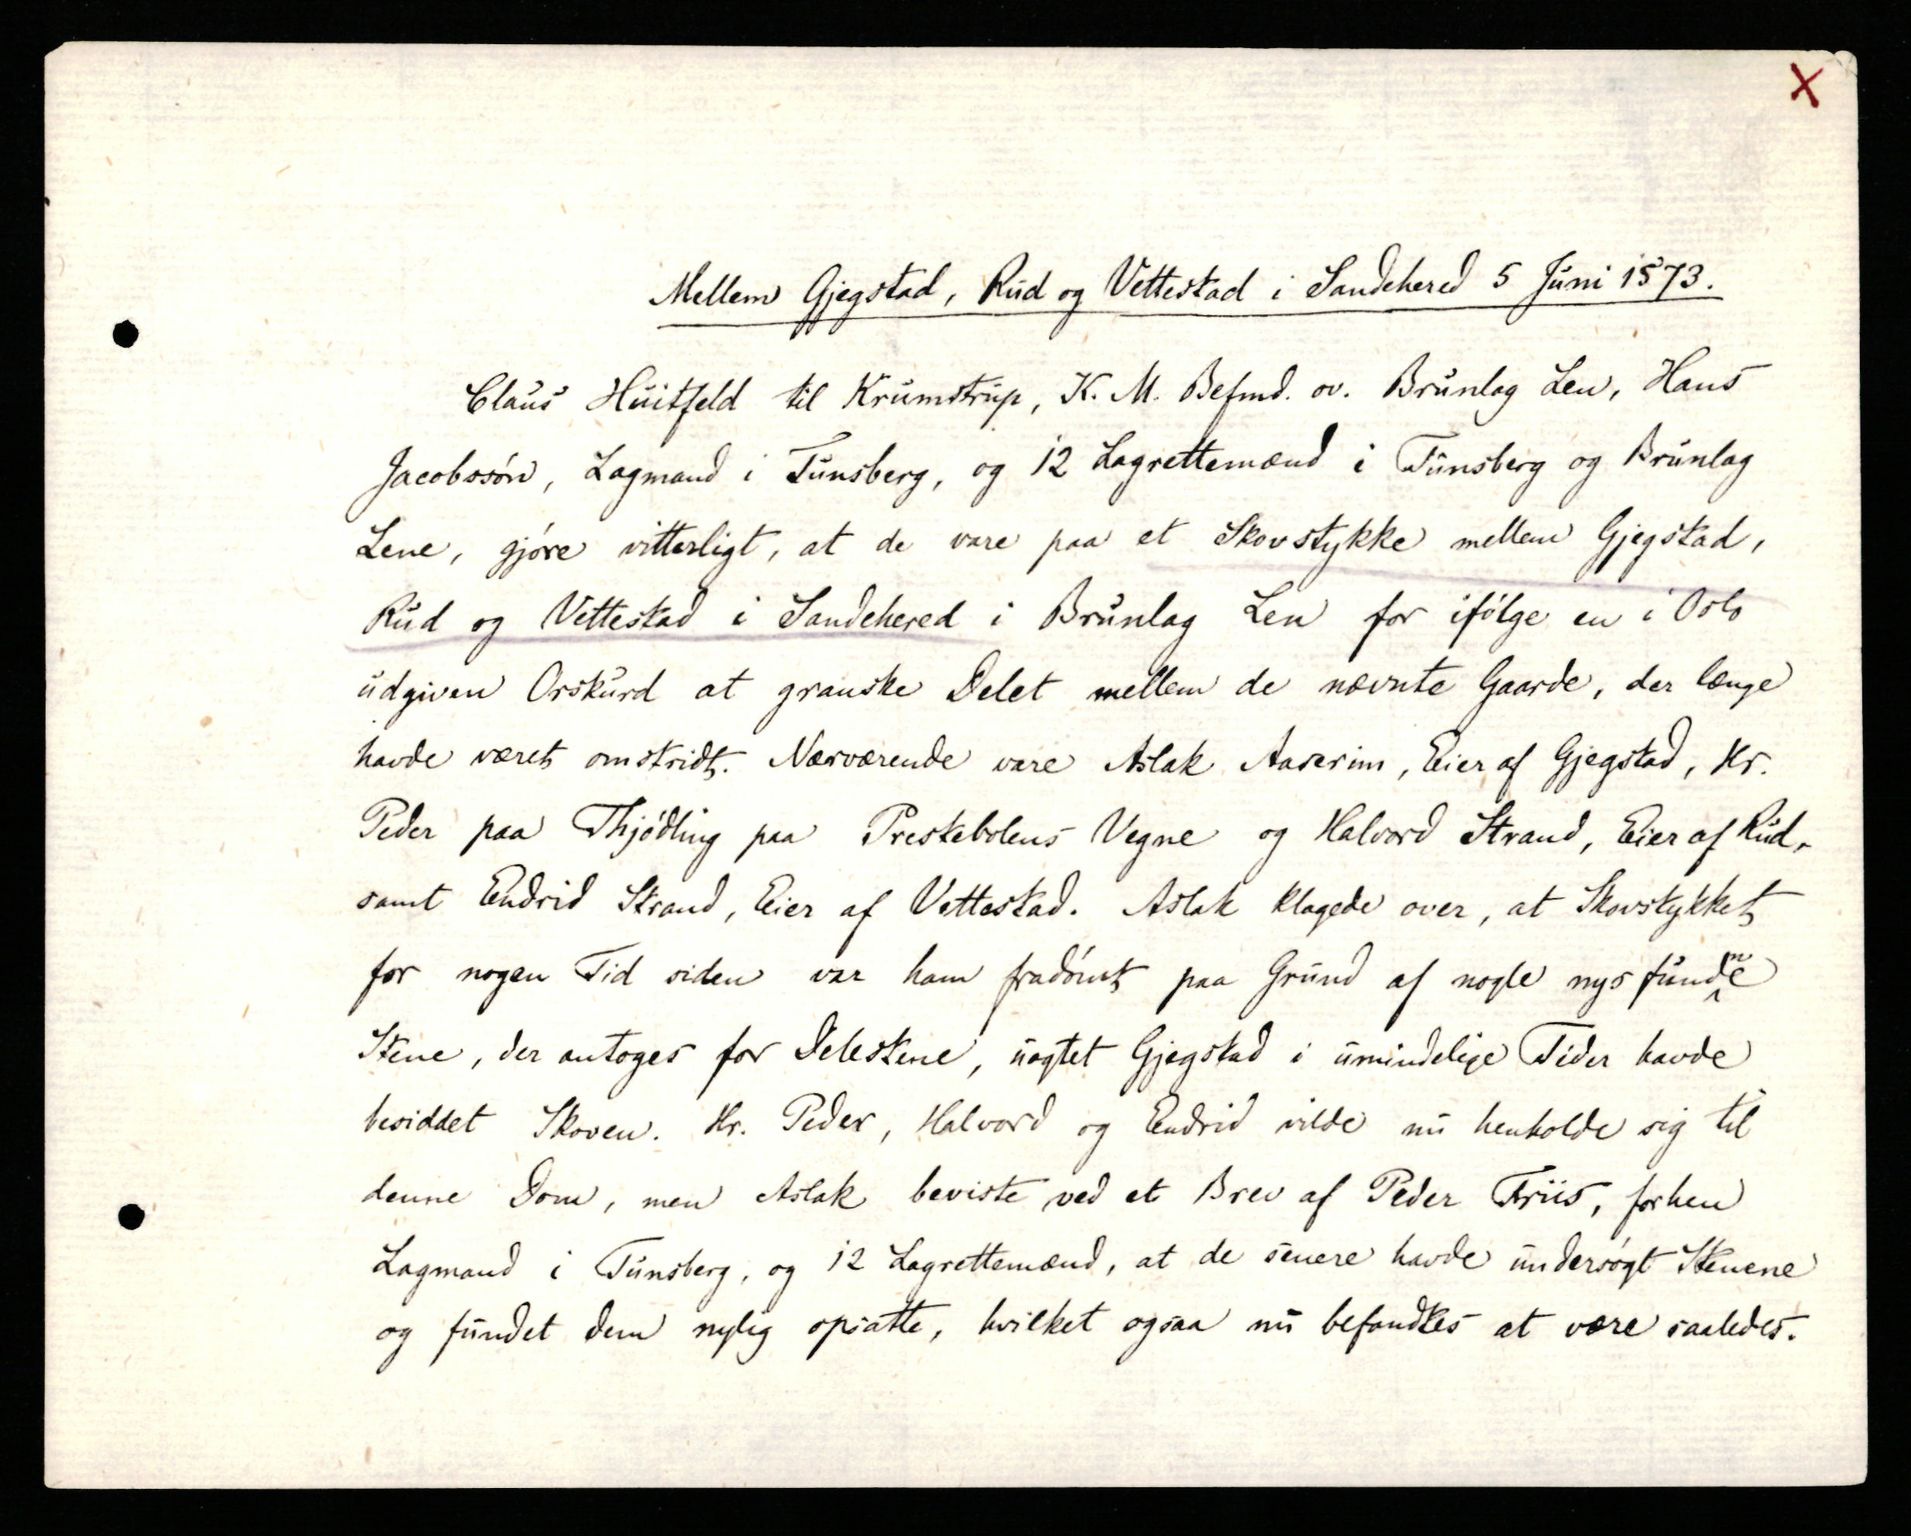 X
Mellem Gjegstad, Rud og Vettestad i Sandehered 5 Juni 1573.
Claus Huitfeld til Krumstrup, K. M. Befmd. ov. Brunlag Len, Hans
Jacobssön, Lagmand i Tunsberg, og 12 Lagrettemænd i Tunsberg og Brunlag
Lene, gjöre vitterligt, at de vare paa et Skovstykke mellem Gjegstad,
Rud og Vettestad i Sandehered i Brunlag Len for ifölge en i Oslo
udgiven Orskurd at granske Delet mellem de nævnte Gaarde, der længe
havde været omstridt. Nærværende vare Aslak Aaserim, Eier af Gjegstad, Hr.
Peder paa Thjödling paa Prestebolens Vegne og Halvord Strand, Eier af Rud,
samt Endrid Strand, Eier af Vettestad. Aslak klagede over, at Skovstykket
for nogen Tid siden var ham fradömt paa Grund af nogle nys fundne
Stene, der antoges for Delestene, uagtet Gjegstad i umindelige Tider havde
besiddet Skoven. Hr. Peder, Halvord og Endrid vilde nu henholde sig til
denne Dom, men Aslak beviste ved et Brev af Peder Friis, forhen
Lagmand i Tunsberg, og 12 Lagrettemænd, at de senere havde undersögt Stenene
og fundet dem nylig opsatte, hvilket ogsaa nu befandtes at være saaledes.